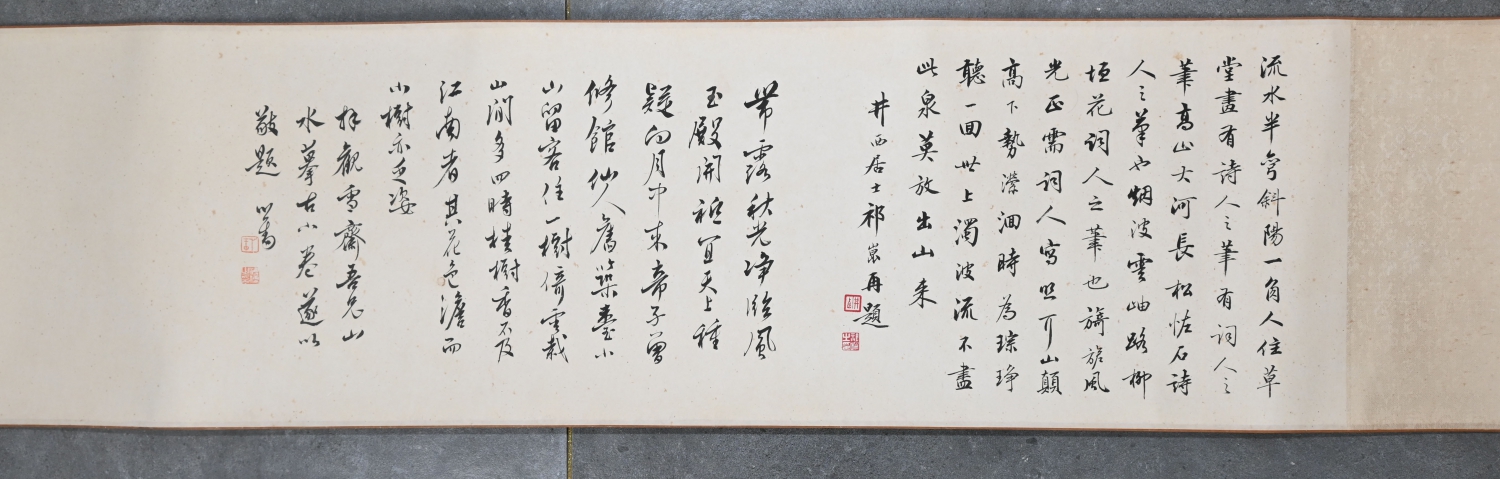 流水半弯斜陽一角人住草
堂畫有詩人之筆有詞人之
筆高山大河長松怪石詩
人之筆也烟波雲岫路柳
垣花詞人之筆也旖旎風
光正需詞人寫照 山顛
高下勢瀠洄時為琮琤
聽一回世上濁波流不盡
此泉莫放出山來
井西居士祁崑再題
帶露秋光淨臨風
玉殿開祇宜天上種
疑向月中來帝子曾
修館仙人舊築臺小
山留客住一樹倚雲栽
山間多四時桂樹香不及
江南者其花色澹而
小樹亦乏姿
拜觀雪齋吾兄山
水摹古小卷遂以
敬題 心畬